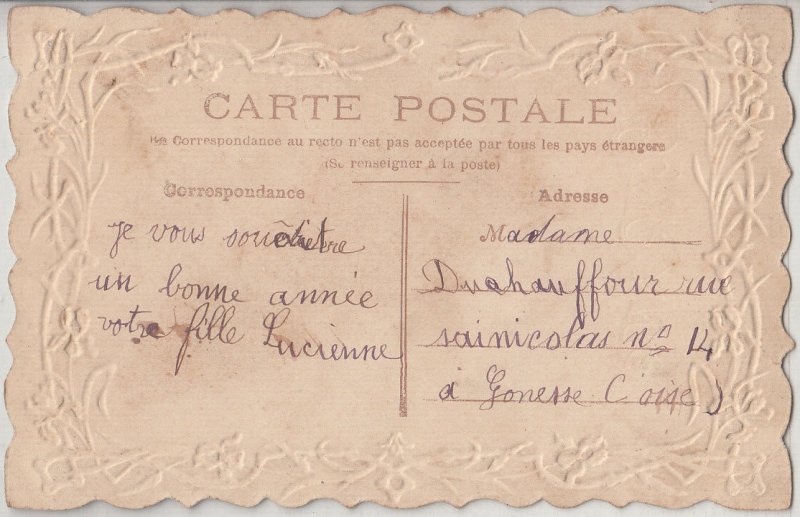 CARTE POSTALE
La Correspondance au recto n'est pas acceptée par tous les pays étrangers
(Se renseigner à la poste)
Correspondance
je vous
un bonne année
votre fille Lucienne
Adresse
Madame
Duchauffour rue
sainicolas no 14
a Gonesse (oise)